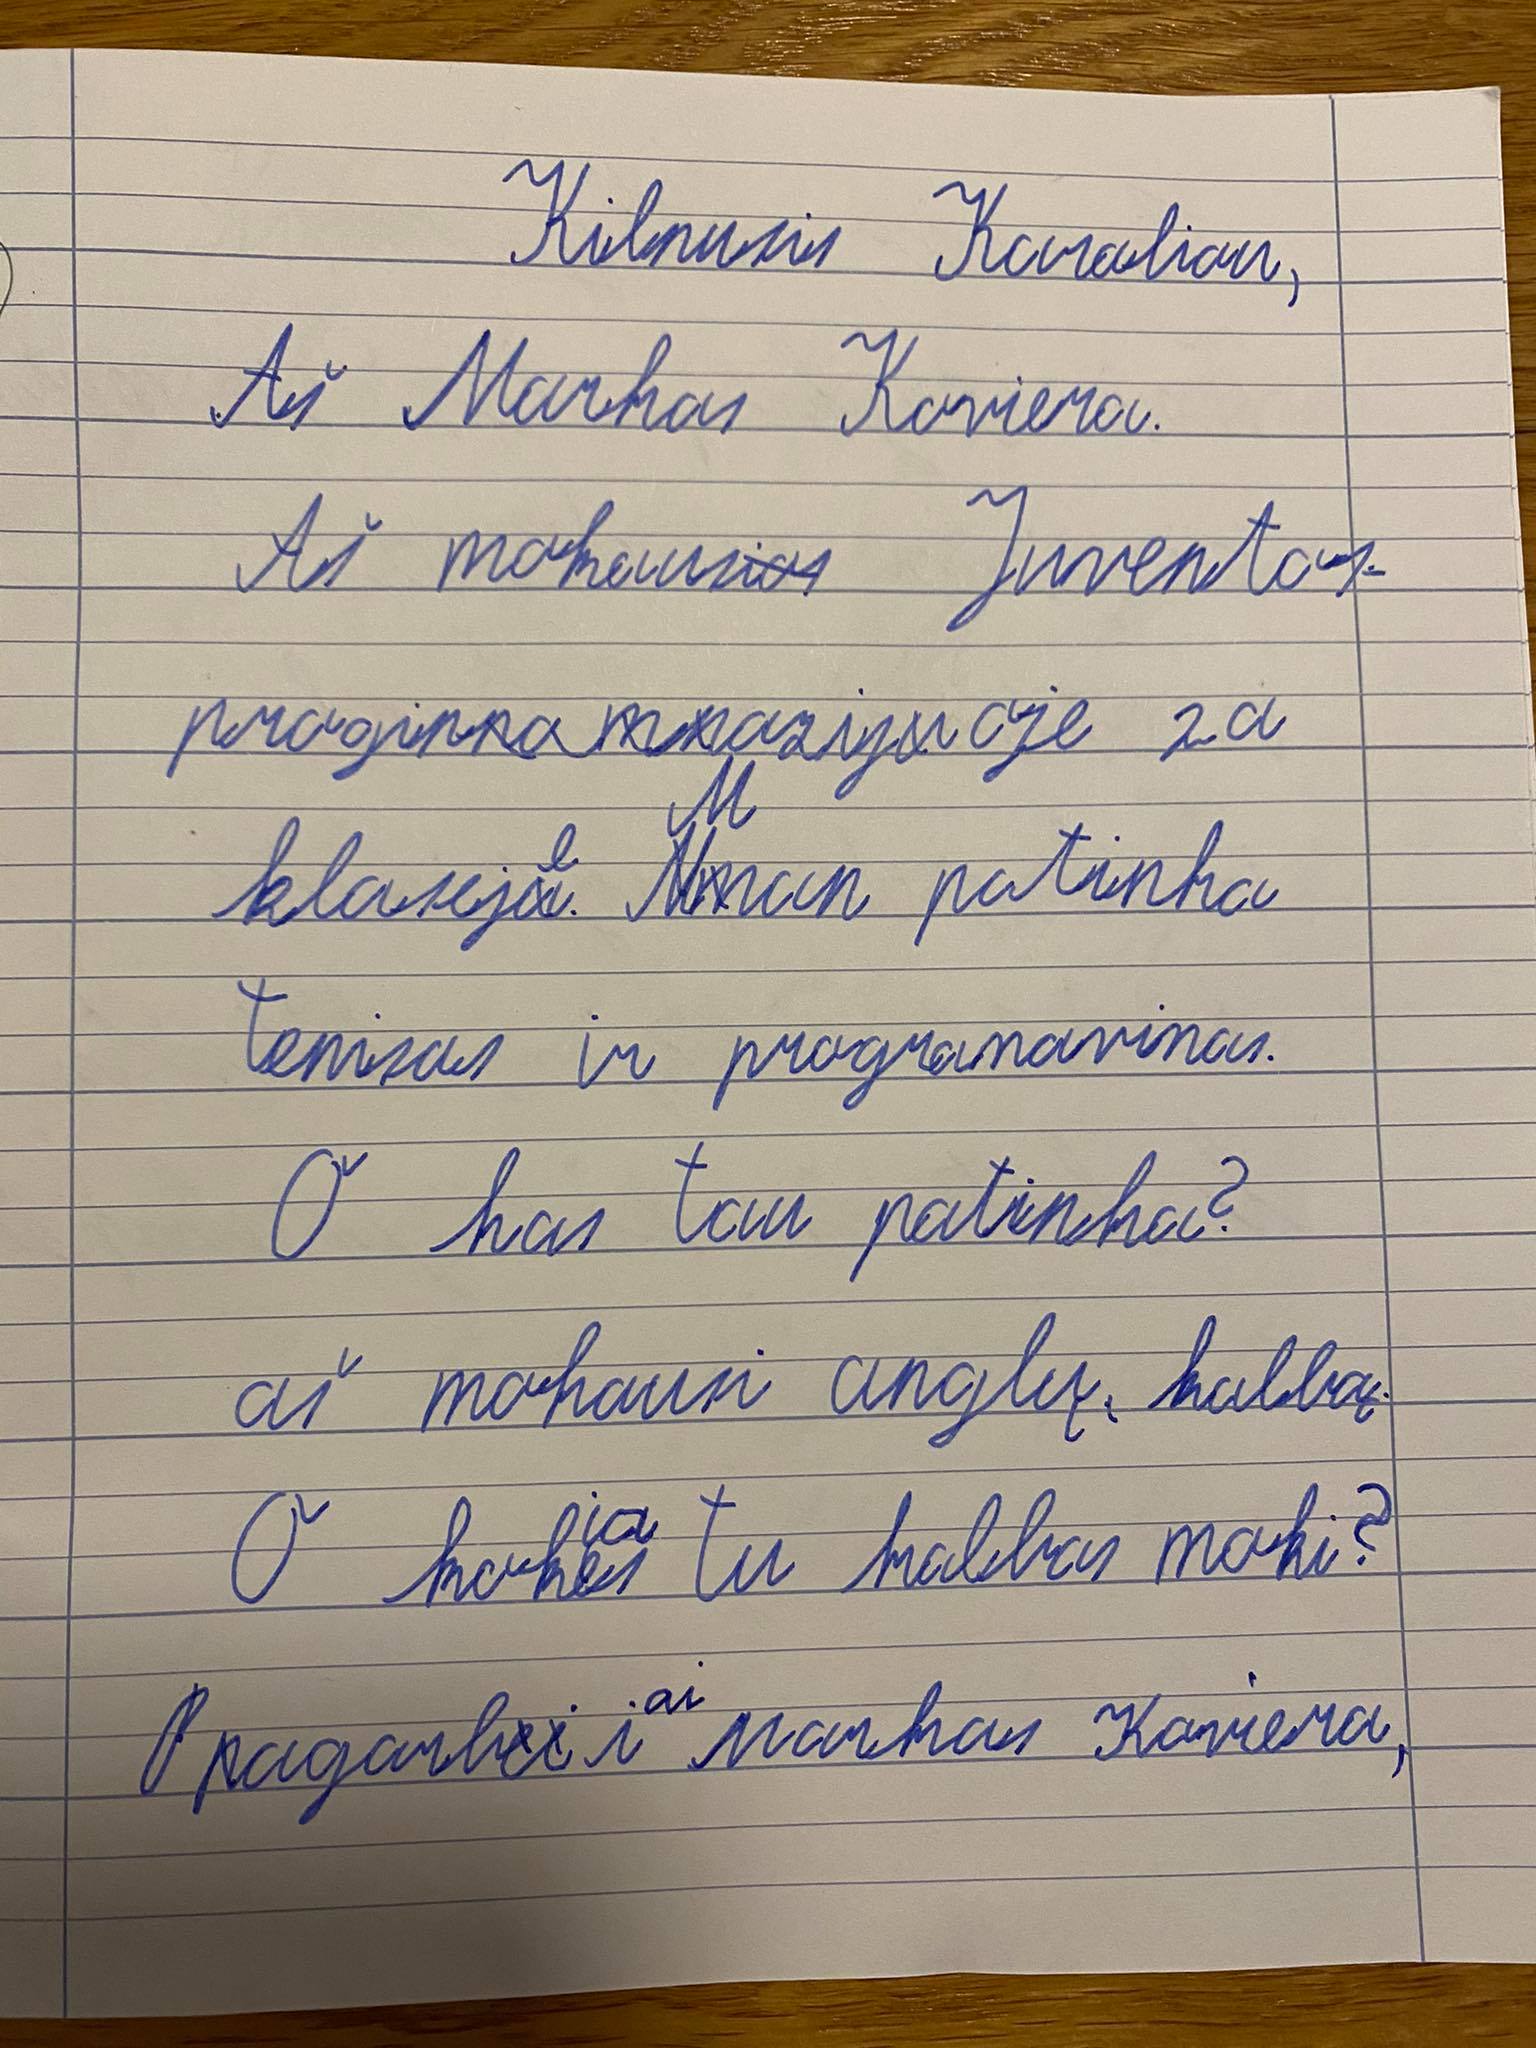 Kilnusis Karaliau,
Aš Markas Kaviera.
Aš mokausi Juventos
progimnazijoje 2a
klasėje. Man patinka
tenisas ir programavinas.
O kas tau patinka?
aš mokausi anglų, kalbą.
O kokias tu kalbas moki?
Pagarbiai Markas Kaviera,